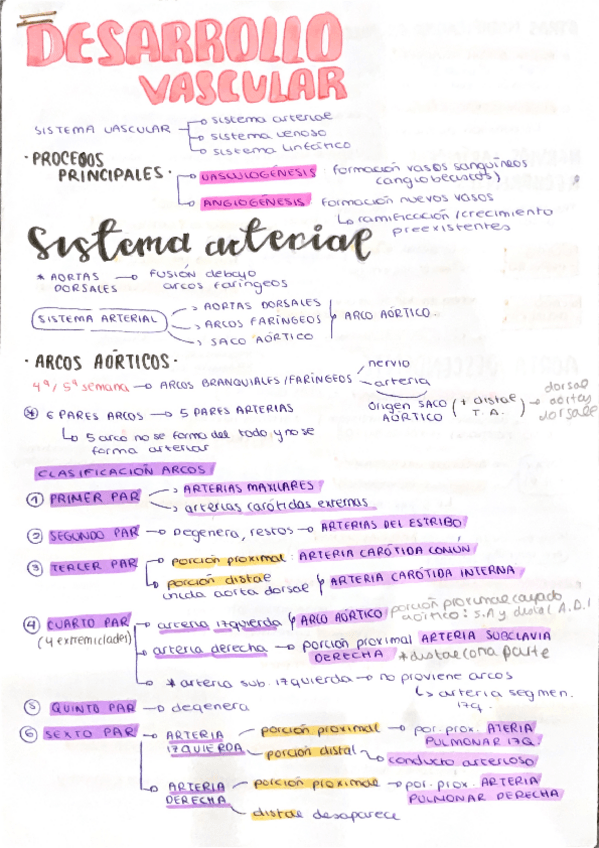 DESARROLLO
VASCULAR
SISTEMA VASCULAR
sistema arterial
sistema venoso
sistema linfático
· PROCESOS
PRINCIPALES ·
VASCULOGÉNESIS : formación vasos sanguíneos
(angioblastos)
ANGIOGÉNESIS : formación nuevos vasos
ramificación/crecimiento
preexistentes
Sistema arterial
* AORTAS → fusión debajo
DORSALES arcos faríngeos
SISTEMA ARTERIAL
AORTAS DORSALES
ARCOS FARÍNGEOS ARCO AÓRTICO
SACO AÓRTICO
· ARCOS AÓRTICOS ·
4ª/5ª semana → ARCOS BRANQUIALES/FARÍNGEOS
nervio
arteria
origen SACO (+ distal → dorsal
AÓRTICO T.A.) aortas
dorsales
* 6 PARES ARCOS → 5 PARES ARTERIAS
5 arco no se forma del todo y no se
forma arterias
CLASIFICACIÓN ARCOS
① PRIMER PAR
ARTERIAS MAXILARES
arterias carótidas externas
② SEGUNDO PAR → Degenera, restos → ARTERIAS DEL ESTRIBO
③ TERCER PAR
porción proximal : ARTERIA CAROTIDA COMÚN
porción distal ARTERIA CAROTIDA INTERNA
unida aorta dorsal
④ CUARTO PAR
(4 extremidades)
arteria izquierda ARCO AÓRTICO porción proximal cayado
aórtico : S.A y distal A.D.I
arteria derecha → porción proximal ARTERIA SUBCLAVIA
DERECHA * distal como parte
* arteria sub. izquierda → no proviene arcos
arteria segmen.
izq.
⑤ QUINTO PAR → degenera
⑥ SEXTO PAR
ARTERIA porción proximal → por. prox. ATERIA
IZQUIERDA PULMONAR IZQ.
porción distal conducto arterioso
ARTERIA porción proximal → por. prox. ARTERIA
DERECHA PULMONAR DERECHA
distal desaparece